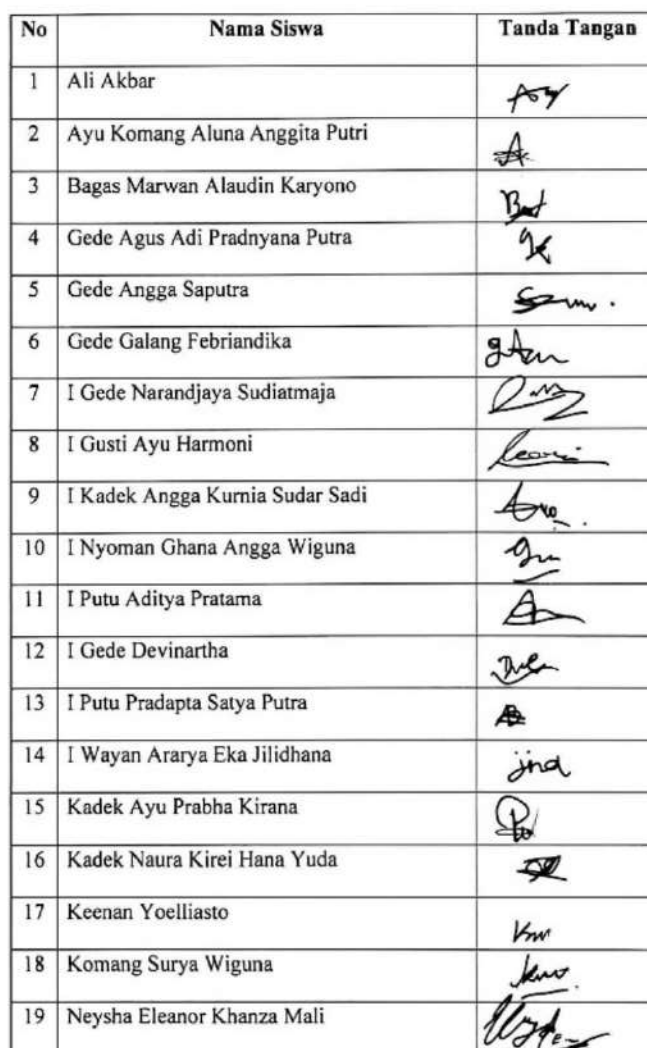 No Nama Siswa Tanda Tangan
1 Ali Akbar
2 Ayu Komang Aluna Anggita Putri
3 Bagas Marwan Alaudin Karyono
4 Gede Agus Adi Pradnyana Putra
5 Gede Angga Saputra
6 Gede Galang Febriandika
7 I Gede Narandjaya Sudiatmaja
8 I Gusti Ayu Harmoni
9 I Kadek Angga Kurnia Sudar Sadi
10 I Nyoman Ghana Angga Wiguna
11 I Putu Aditya Pratama
12 I Gede Devinartha
13 I Putu Pradapta Satya Putra
14 I Wayan Ararya Eka Jilidhana
15 Kadek Ayu Prabha Kirana
16 Kadek Naura Kirei Hana Yuda
17 Keenan Yoelliasto
18 Komang Surya Wiguna
19 Neysha Eleanor Khanza Mali